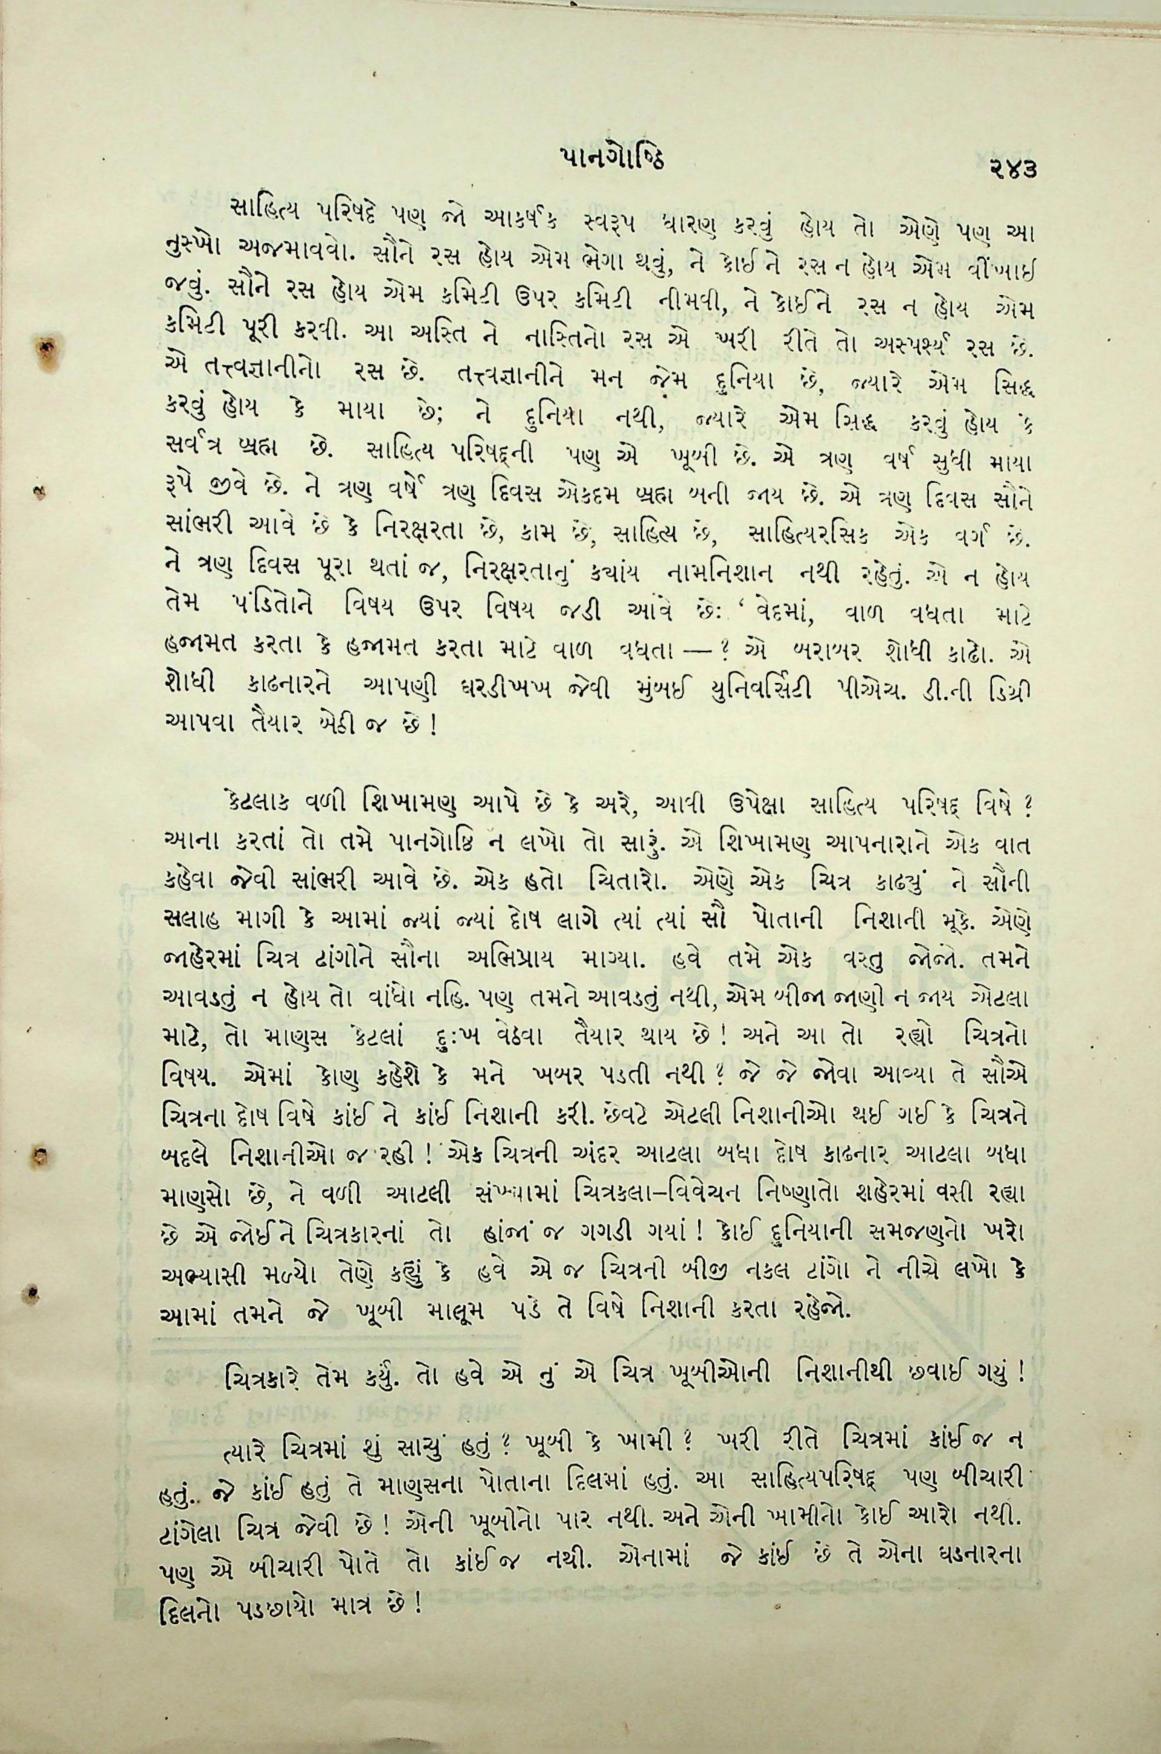 પાનગોષ્ઠિ
૨૪૩
સાહિત્ય પરિષદે પણ જો આકર્ષક સ્વરૂપ ધારણ કરવું હોય તો એણે પણ આ
નુસ્ખો અજમાવવો. સૌને રસ હોય એમ ભેગા થવું, ને કોઈને રસ ન હોય એમ વીંખાઈ
જવું. સૌને રસ હોય એમ કમિટી ઉપર કમિટી નીમવી, ને કોઈને રસ ન હોય એમ
કમિટી પૂરી કરવી. આ અસ્તિ ને નાસ્તિનો રસ એ ખરી રીતે તો અસ્પર્શ્ય રસ છે.
એ તત્ત્વજ્ઞાનીનો રસ છે. તત્ત્વજ્ઞાનીને મન જેમ દુનિયા છે, જ્યારે એમ સિદ્ધ
કરવું હોય કે માયા છે; ને દુનિયા નથી, જ્યારે એમ સિદ્ધ કરવું હોય કે
સર્વત્ર બ્રહ્મ છે. સાહિત્ય પરિષદ્‌ની પણ એ ખૂબી છે. એ ત્રણ વર્ષ સુધી માયા
રૂપે જીવે છે. ને ત્રણ વર્ષે ત્રણ દિવસ એકદમ બ્રહ્મ બની જાય છે. એ ત્રણ દિવસ સૌને
સાંભરી આવે છે કે નિરક્ષરતા છે, કામ છે, સાહિત્ય છે, સાહિત્યરસિક એક વર્ગ છે.
ને ત્રણ દિવસ પૂરા થતાં જ, નિરક્ષરતાનું ક્યાંય નામનિશાન નથી રહેતું. એ ન હોય
તેમ પંડિતોને વિષય ઉપર વિષય જડી આવે છેઃ ‘ વેદમાં, વાળ વધતા માટે
હજામત કરતા કે હજામત કરતા માટે વાળ વધતા — ? એ બરાબર શોધી કાઢો. એ
શોધી કાઢનારને આપણી ઘરડીખખ જેવી મુંબઈ યુનિવર્સિટી પીએચ. ડી.ની ડિગ્રી
આપવા તૈયાર બેઠી જ છે !
કેટલાક વળી શિખામણ આપે છે કે અરે, આવી ઉપેક્ષા સાહિત્ય પરિષદ્ વિષે ?
આના કરતાં તો તમે પાનગોષ્ઠિ ન લખો તો સારું. એ શિખામણ આપનારાને એક વાત
કહેવા જેવી સાંભરી આવે છે. એક હતો ચિતારો. એણે એક ચિત્ર કાઢ્યું ને સૌની
સલાહ માગી કે આમાં જ્યાં જ્યાં દોષ લાગે ત્યાં ત્યાં સૌ પોતાની નિશાની મૂકે. એણે
જાહેરમાં ચિત્ર ટાંગીને સૌના અભિપ્રાય માગ્યા. હવે તમે એક વસ્તુ જોજો. તમને
આવડતું ન હોય તો વાંધો નહિ. પણ તમને આવડતું નથી, એમ બીજા જાણી ન જાય એટલા
માટે, તો માણસ કેટલાં દુઃખ વેઠવા તૈયાર થાય છે ! અને આ તો રહ્યો ચિત્રનો
વિષય. એમાં કોણ કહેશે કે મને ખબર પડતી નથી ? જે જે જોવા આવ્યા તે સૌએ
ચિત્રના દોષ વિષે કાંઈ ને કાંઈ નિશાની કરી. છેવટે એટલી નિશાનીઓ થઈ ગઈ કે ચિત્રને
બદલે નિશાનીઓ જ રહી ! એક ચિત્રની અંદર આટલા બધા દોષ કાઢનાર આટલા બધા
માણસો છે, ને વળી આટલી સંખ્યામાં ચિત્રકલા–વિવેચન નિષ્ણાતો શહેરમાં વસી રહ્યા
છે એ જોઈને ચિત્રકારનાં તો હાંજાં જ ગગડી ગયાં ! કોઈ દુનિયાની સમજણનો ખરો
અભ્યાસી મળ્યો તેણે કહ્યું કે હવે એ જ ચિત્રની બીજી નકલ ટાંગો ને નીચે લખો કે
આમાં તમને જે ખૂબી માલૂમ પડે તે વિષે નિશાની કરતા રહેજો.
ચિત્રકારે તેમ કર્યું. તો હવે એ નું એ ચિત્ર ખૂબીઓની નિશાનીથી છવાઈ ગયું !
ત્યારે ચિત્રમાં શું સાચું હતું ? ખૂબી કે ખામી ? ખરી રીતે ચિત્રમાં કાંઈ જ ન
હતું. જે કાંઈ હતું તે માણસના પોતાના દિલમાં હતું. આ સાહિત્યપરિષદ્ પણ બીચારી
ટાંગેલા ચિત્ર જેવી છે ! એની ખૂબીનો પાર નથી. અને એની ખામીનો કોઈ આરો નથી.
પણ એ બીચારી પોતે તો કાંઈ જ નથી. એનામાં જે કાંઈ છે તે એના ઘડનારના
દિલનો પડછાયો માત્ર છે !